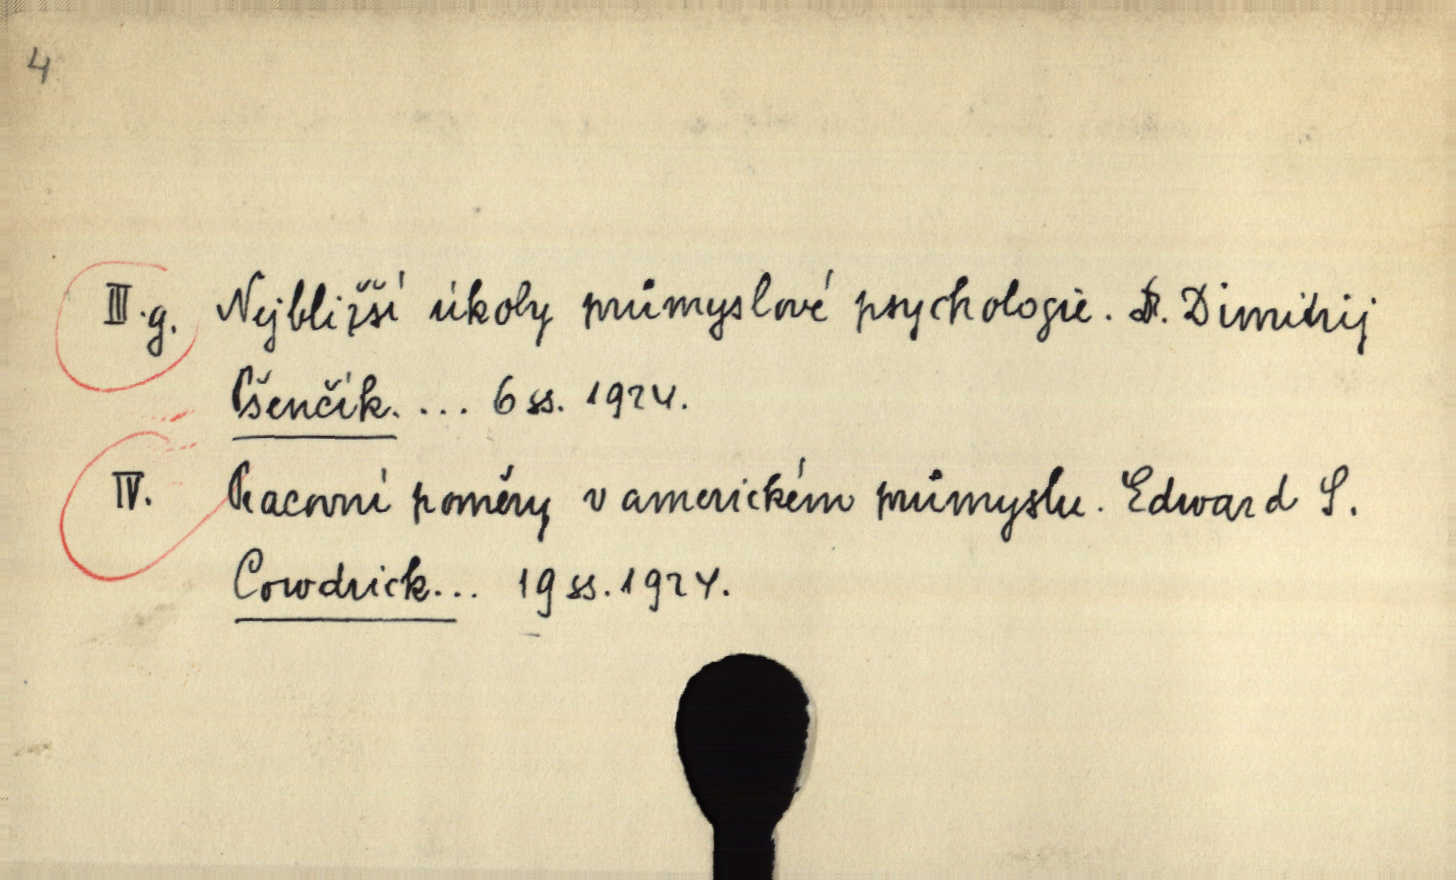 4
III.g. Nejbližší úkoly průmyslové psychologie. Dr. Dimitrij
Pšenčík. ... 6 ss. 1924.
IV. Pracovní poměry v americkém průmyslu. Edward S.
Cowdrick... 19 ss. 1924.